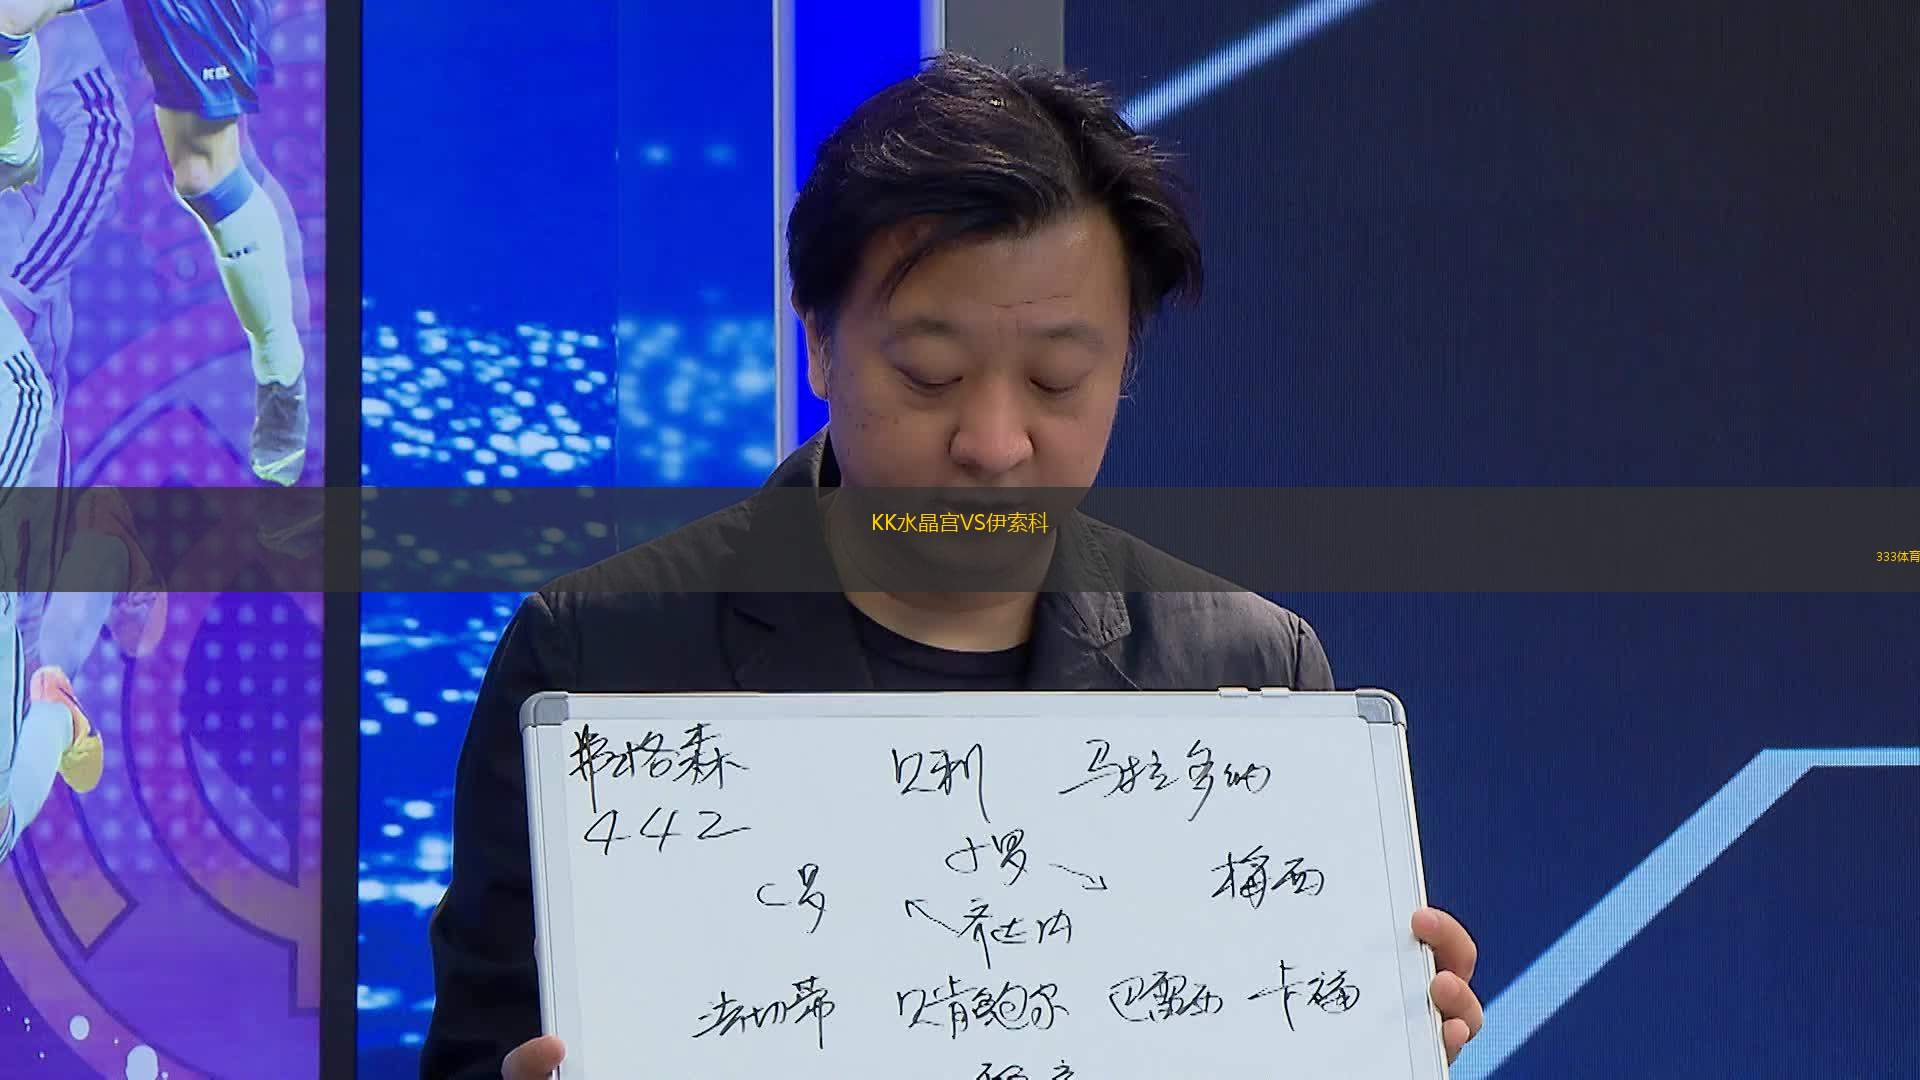 KK水晶宫VS伊索科
333体育
弗格森 贝利 马拉多纳
442
小罗
C罗 梅西
齐达内
法切蒂 贝肯鲍尔 巴雷西 卡福